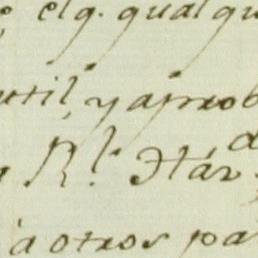 elq. qual qu
util, y aprob
Rl. Ház
a otros pa